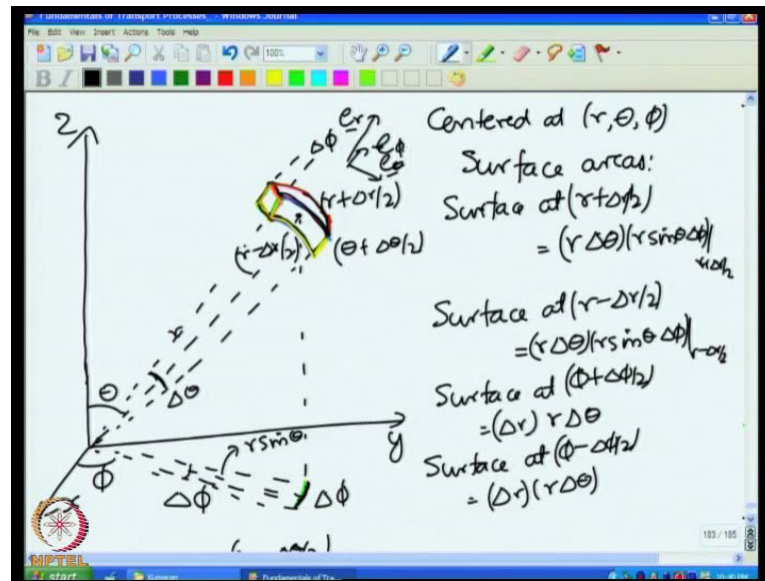 Fundamentals of Transport Processes_ - Windows Journal
File Edit View Insert Actions Tools Help
100%
B I
z
Δϕ
e_r
e_ϕ
e_θ
(r+Δr/2)
(r-Δr/2)
(θ+Δθ/2)
r
θ
Δθ
y
r sinθ
ϕ
Δϕ
Δϕ
x
Centered at (r,θ,ϕ)
Surface areas:
Surface at (r+Δr/2)
= (rΔθ)(r sinθ Δϕ)|r+Δr/2
Surface at (r-Δr/2)
= (rΔθ)(r sinθ Δϕ)|r-Δr/2
Surface at (ϕ+Δϕ/2)
= (Δr) rΔθ
Surface at (ϕ-Δϕ/2)
= (Δr)(rΔθ)
183 / 185
NPTEL
start
Fundamentals of Tra...